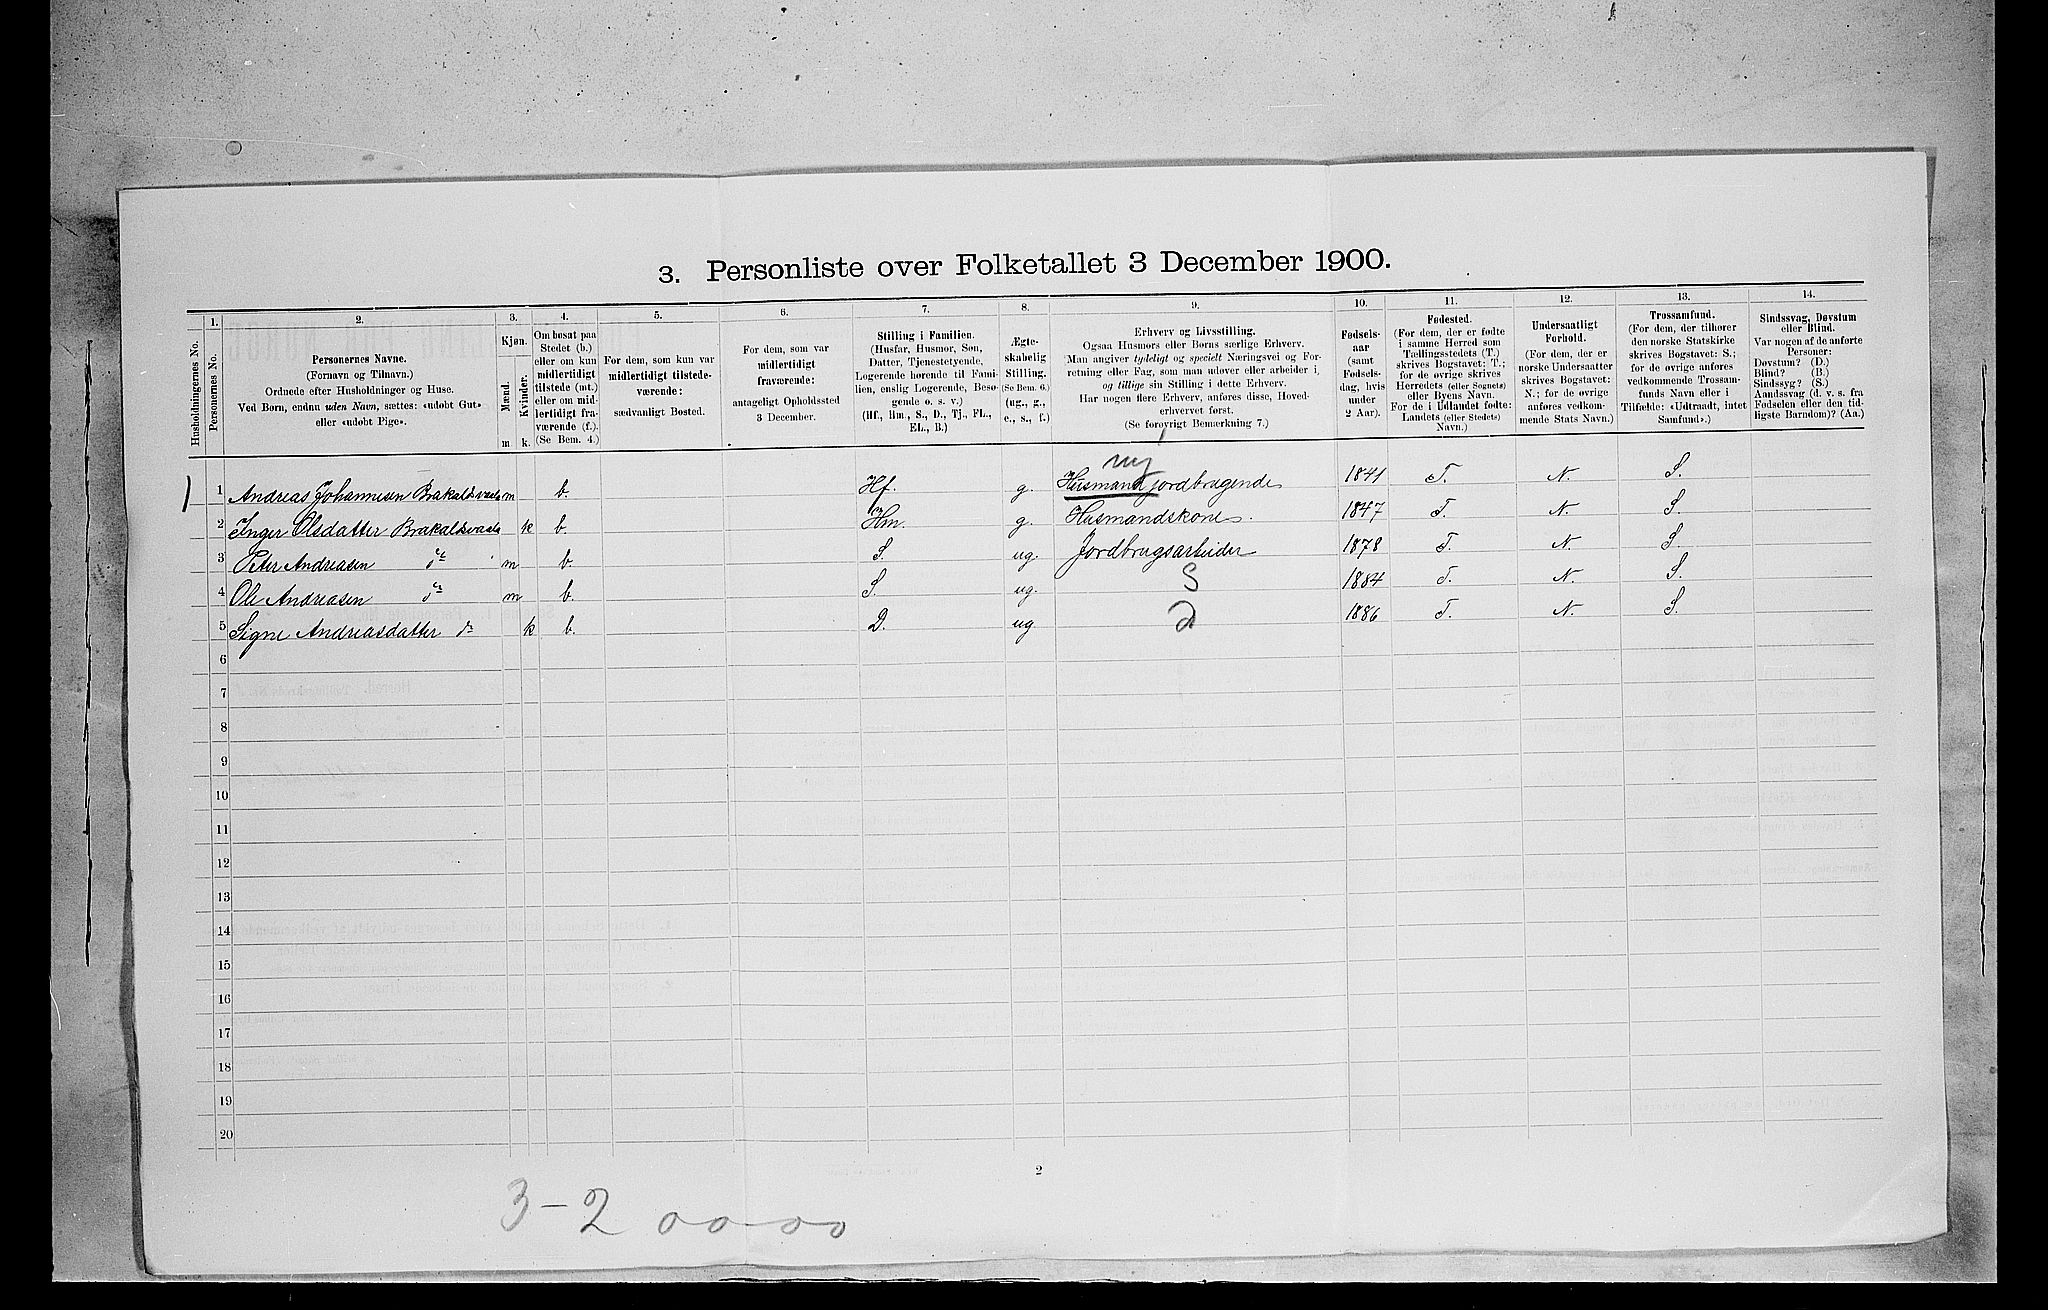 3. Personliste over Folketallet 3 December 1900.
1. 2. 3. 4. 5. 6. 7. 8. 9. 10. 11. 12. 13. 14.
Husholdningernes No.
Personernes No.
Personernes Navne.
(Fornavn og Tilnavn.)
Ordnede efter Husholdninger og Huse.
Ved Børn, endnu uden Navn, sættes: «udøbt Gut»
eller «udøbt Pige».
Kjøn.
Mænd.
Kvinder.
m k.
Om bosat paa
Stedet (b.)
eller om kun
midlertidigt
tilstede (mt.)
eller om mid-
lertidigt fra-
værende (f.).
(Se Bem. 4.)
For dem, som kun var
midlertidigt tilstede-
værende:
sædvanligt Bosted.
For dem, som var
midlertidigt
fraværende:
antageligt Opholdssted
3 December.
Stilling i Familien.
(Husfar, Husmor, Søn,
Datter, Tjenestetyende,
Logerende hørende til Fami-
lien, enslig Logerende, Besø-
gende o. s. v.)
(Hf., Hm., S., D., Tj., FL.,
EL., B.)
Ægte-
skabelig
Stilling.
(Se Bem. 6.)
(ug., g.,
e., s., f.)
Erhverv og Livsstilling.
Ogsaa Husmors eller Børns særlige Erhverv.
Man angiver tydeligt og specielt Næringsvei og For-
retning eller Fag, som man udøver eller arbeider i,
og tillige sin Stilling i dette Erhverv.
Har nogen flere Erhverv, anføres disse, Hoved-
erhvervet først.
(Se forøvrigt Bemærkning 7.)
Fødsels-
aar
(samt
Fødsels-
dag, hvis
under
2 Aar).
Fødested.
(For dem, der er fødte
i samme Herred som
Tællingsstedets (T.)
skrives Bogstavet: T.;
for de øvrige skrives
Herredets (eller Sognets)
eller Byens Navn.
For de i Udlandet fødte:
Landets (eller Stedets)
Navn.)
Undersaatligt
Forhold.
(For dem, der er
norske Undersaatter
skrives Bogstavet:
N.; for de øvrige
anføres vedkom-
mende Stats Navn.)
Trossamfund.
(For dem, der tilhører
den norske Statskirke
skrives Bogstavet: S.;
for de øvrige anføres
vedkommende Trossam-
funds Navn eller i
Tilfælde: «Udtraadt, intet
Samfund».)
Sindssvag, Døvstum
eller Blind.
Var nogen af de anførte
Personer:
Døvstum? (D.)
Blind? (B.)
Sindssyg? (S.)
Aandssvag (d. v. s. fra
Fødselen eller den tid-
ligste Barndom)? (Aa.)
1 1 Andreas Johannesen m b. Hf. g. Husmand jordbrugende 1841 T. N. S.
2 Inger Olsdatter k b. Hm. g. Husmandskone. 1847 T. N. S.
3 Peter Andreasen do m b. S. ug. Jordbrugsarbeider 1878 T. N. S.
4 Ole Andreasen do m b. S. ug. S 1884 T. N. S.
5 Signe Andreasdatter do k b. D. ug. D 1886 T. N. S.
6
7
8
9
10
11
12
13
14
15
16
17
18
19
20
2
3-2 00-00